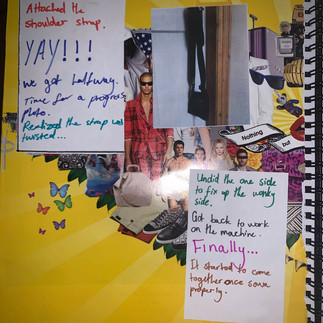 Attached the
shoulder strap.
YAY!!!
we got halfway.
Time for a progress
photo.
Realized the strap was
twisted...
Nothing
but
Undid the one side
to fix up the wonky
side.
Got back to work
on the machine.
Finally...
It started to come
together once sown
properly.